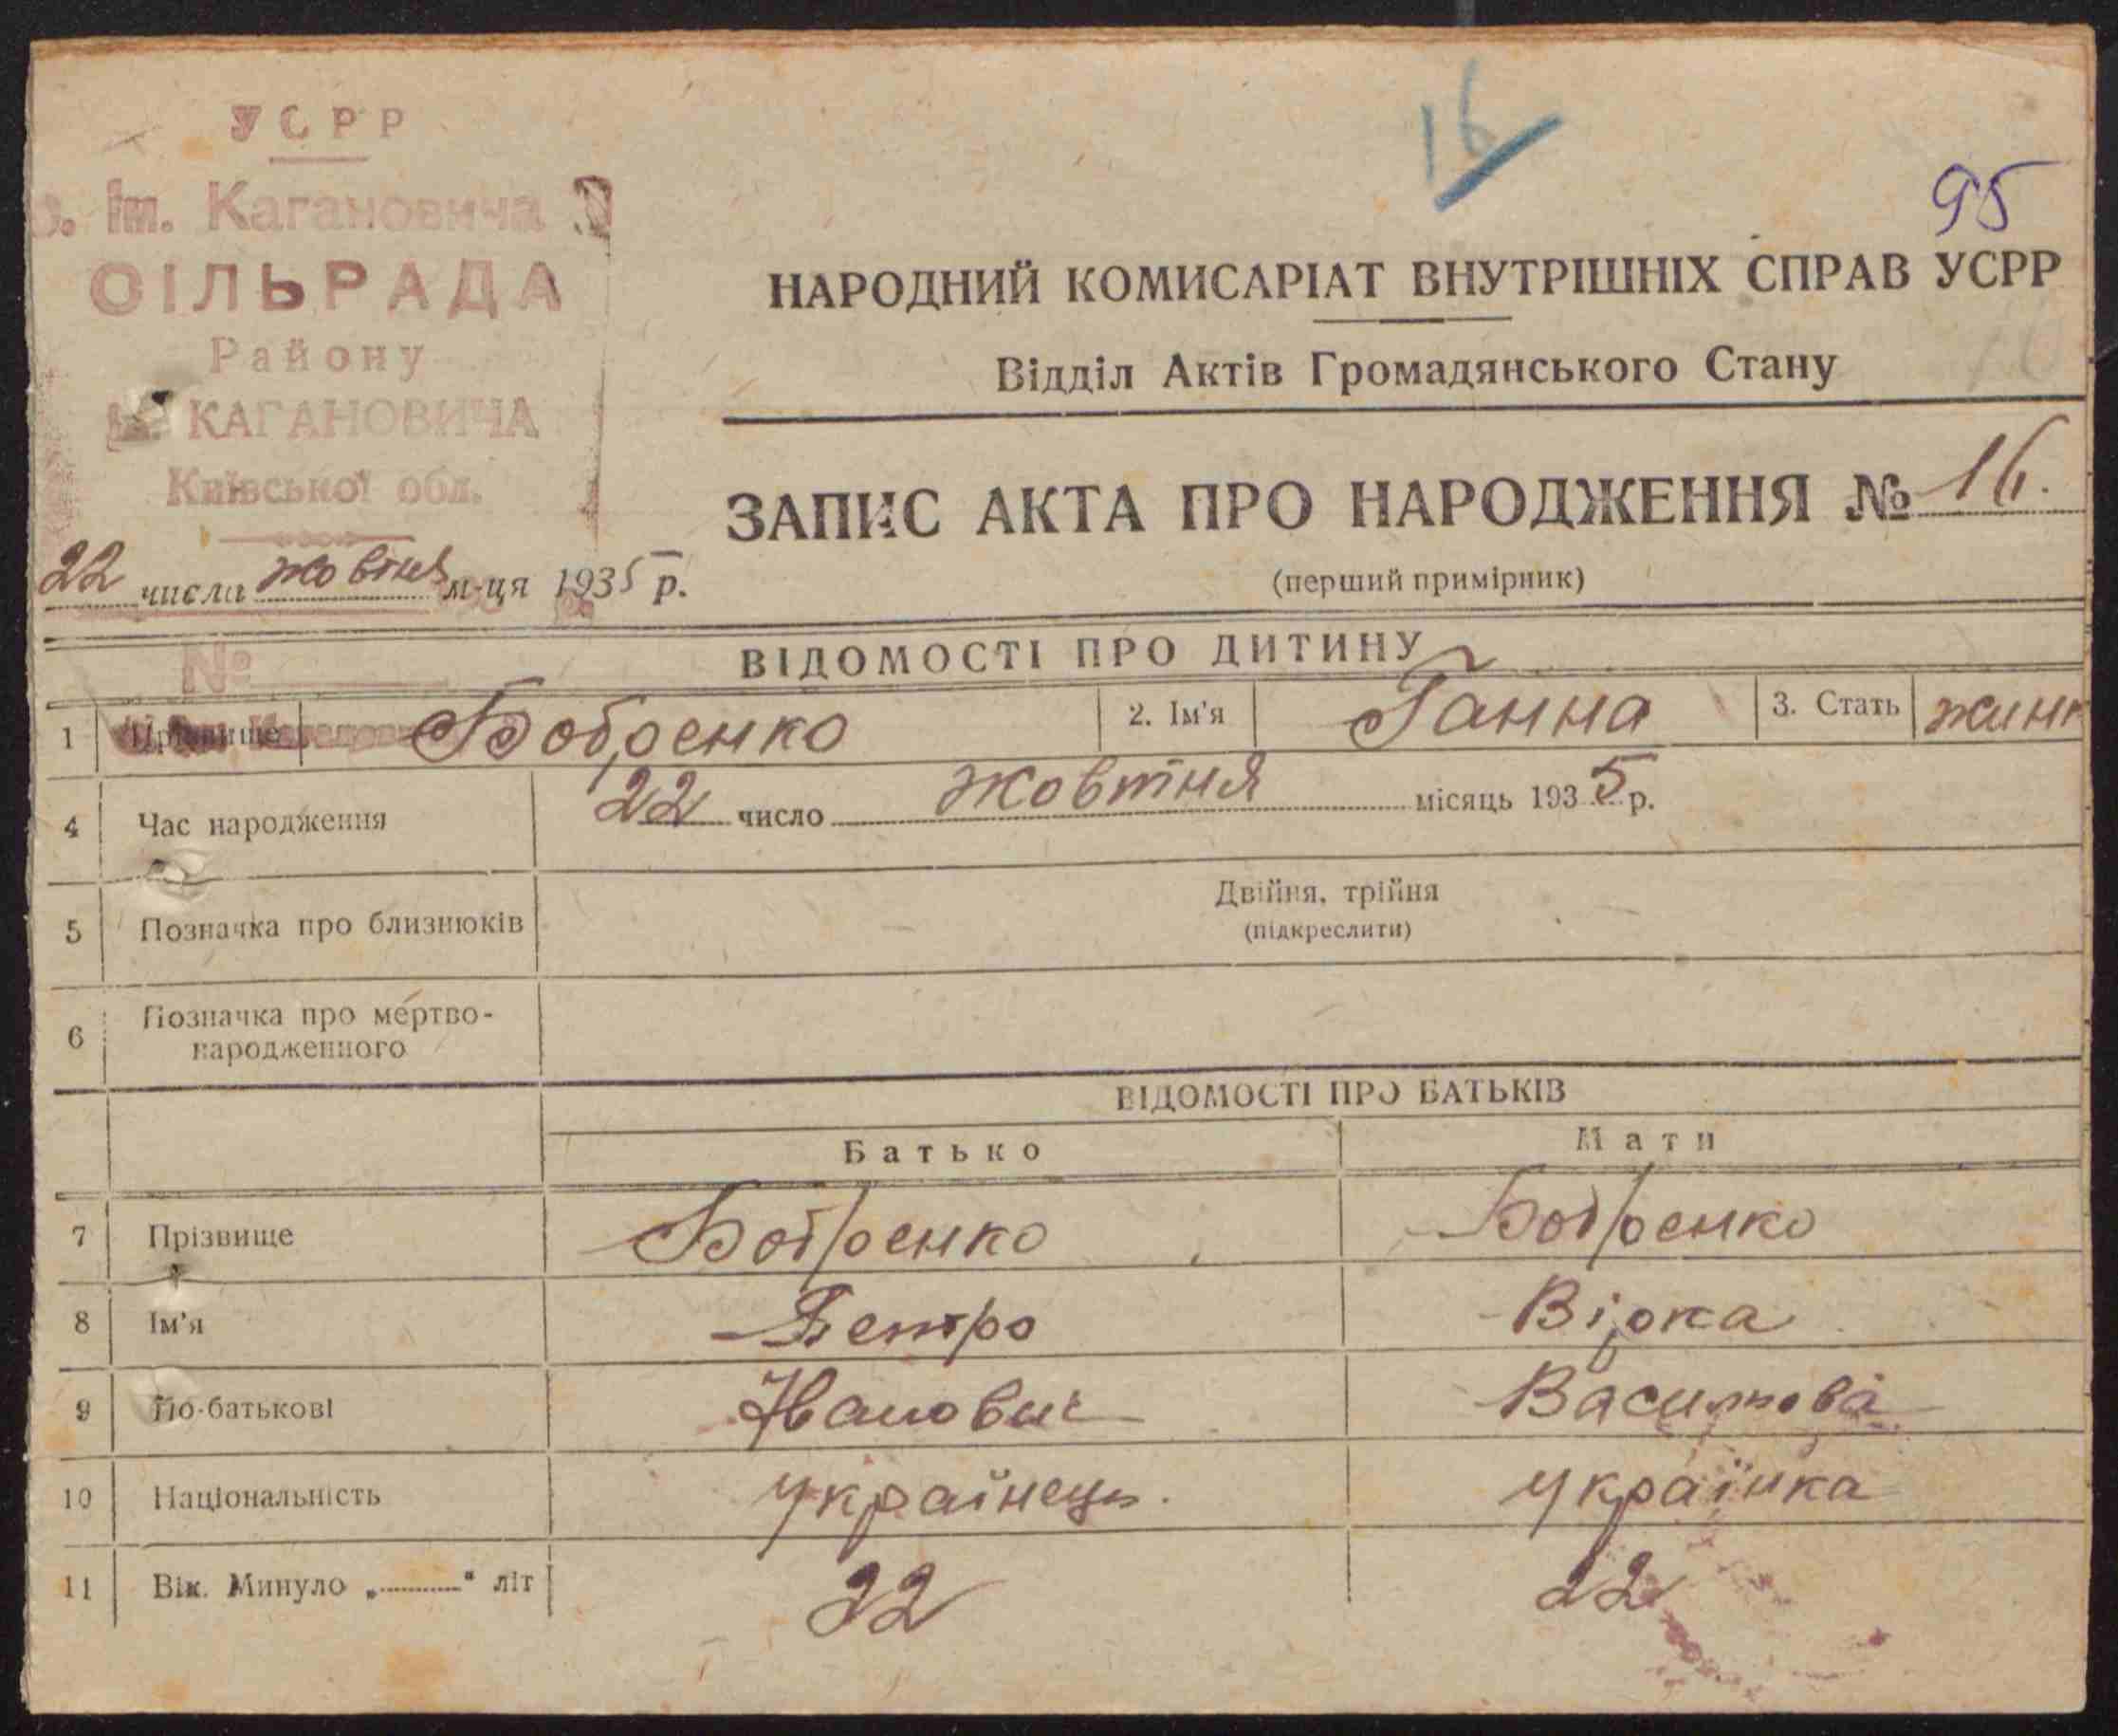 УСРР
16
95
с. Ім. Кагановича
СІЛЬРАДА
Району
ім. КАГАНОВИЧА
Київської обл.
НАРОДНИЙ КОМИСАРІАТ ВНУТРІШНІХ СПРАВ УСРР
Відділ Актів Громадянського Стану
ЗАПИС АКТА ПРО НАРОДЖЕННЯ № 16.
(перший примірник)
22 числа жовтня м-ця 1935 р.
№
ВІДОМОСТІ ПРО ДИТИНУ
1 Прізвище Бобренко 2. Ім'я Ганна 3. Стать жинк
4 Час народження 22 число жовтня місяць 1935 р.
5 Позначка про близнюків Двійня, трійня
(підкреслити)
6 Позначка про мертво-
народженного
ВІДОМОСТІ ПРО БАТЬКІВ
Батько Мати
7 Прізвище Бобренко Бобренко
8 Ім'я Петро Вірка
9 По-батькові Іванович
10 Національність українець. українка
11 Вік. Минуло „ “ літ 22 22